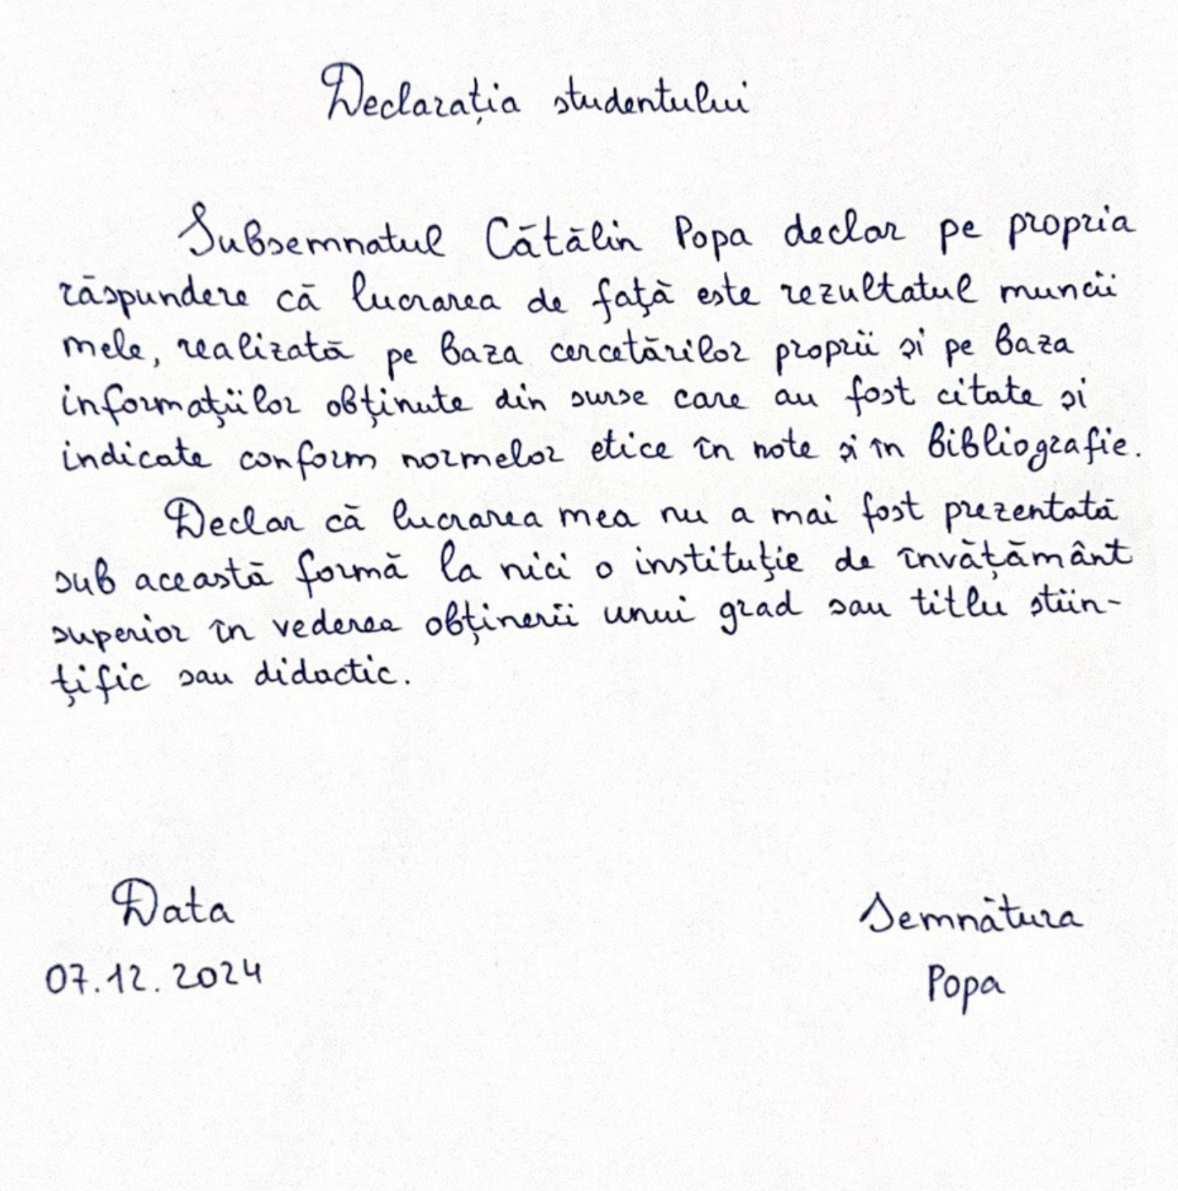 Declarația studentului
Subsemnatul Cătălin Popa declar pe propria
răspundere că lucrarea de față este rezultatul muncii
mele, realizată pe baza cercetărilor proprii și pe baza
informațiilor obținute din surse care au fost citate și
indicate conform normelor etice în note și în bibliografie.
Declar că lucrarea mea nu a mai fost prezentată
sub această formă la nici o instituție de învățământ
superior în vederea obținerii unui grad sau titlu stiin-
țific sau didactic.
Data
Semnătura
07.12.2024
Popa